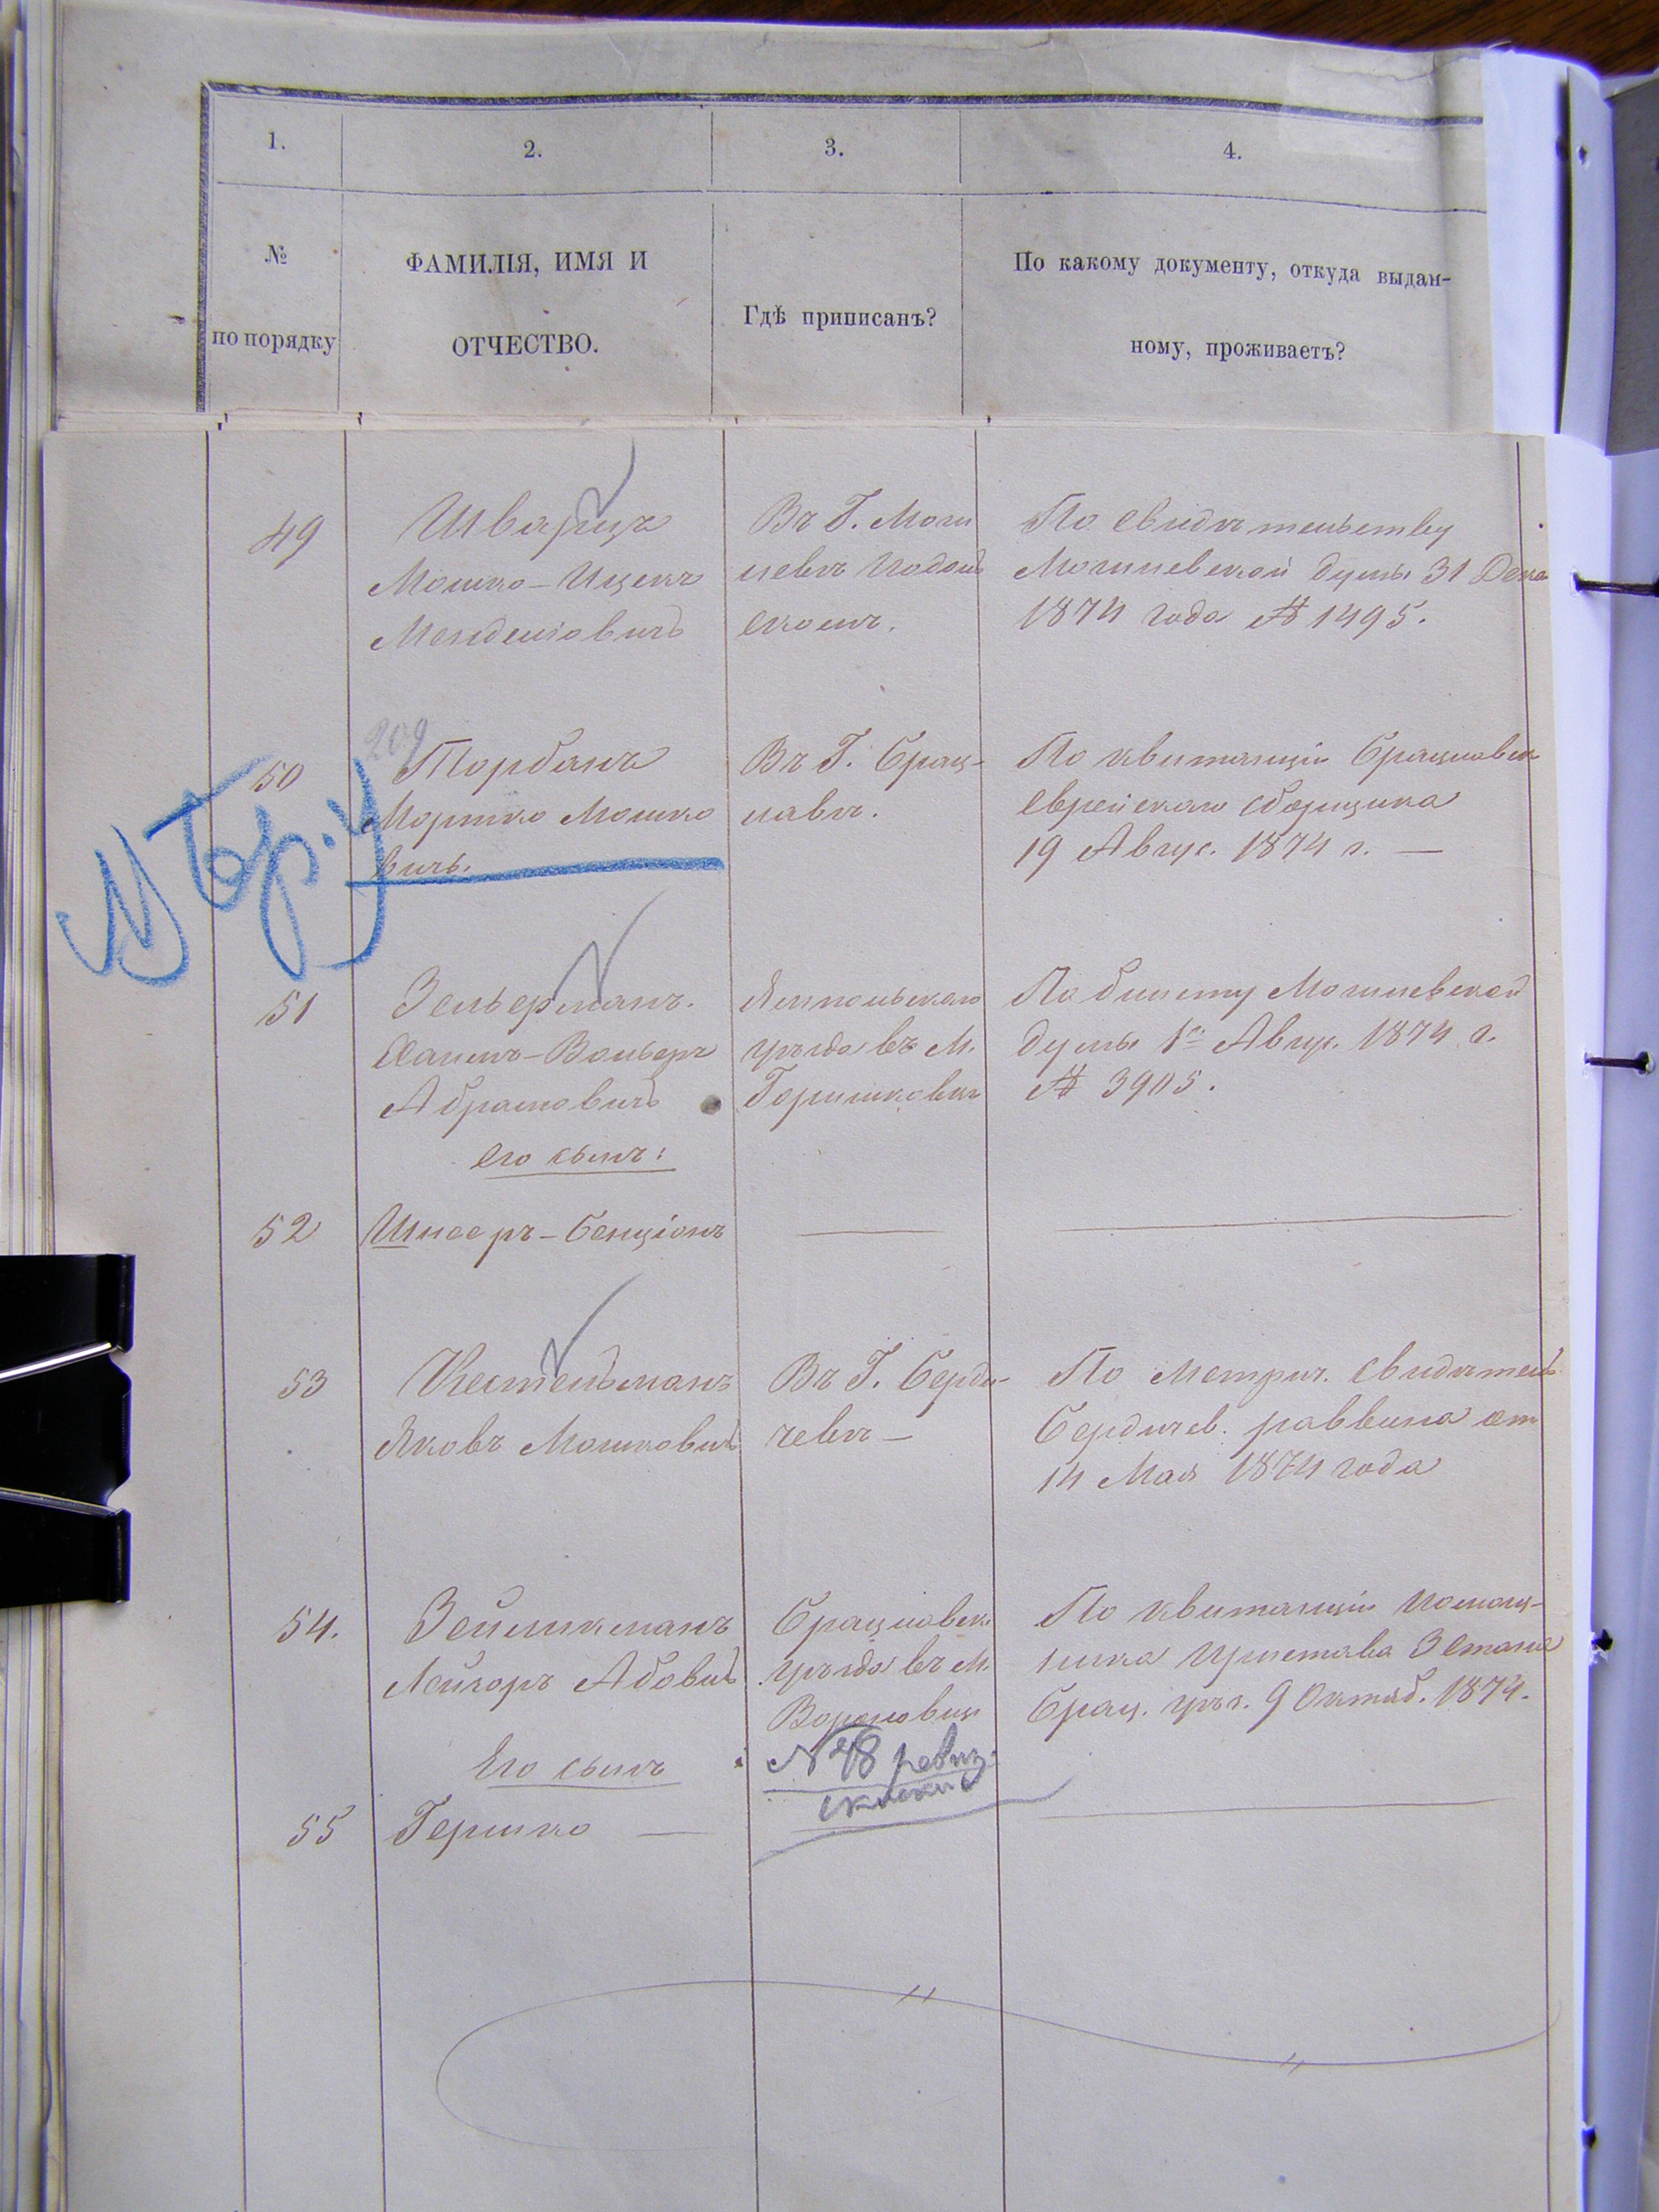 1.
2.
3.
4.
№
по порядку
ФАМИЛІЯ, ИМЯ И
ОТЧЕСТВО.
Гдѣ приписанъ?
По какому документу, откуда выдан-
ному, проживаетъ?
49
Шварцъ
Мошко-Ицекъ
Менделіовичъ
Въ Г. Моги
левѣ Подоль
скомъ.
По свидѣтельству
Могилевской думы 31 Дека
1874 года № 1495.
209
50
Торбанъ
Мортко Мошко
вичъ.
Въ Г. Брац-
лавѣ.
По квитанціи Брацлавск
Еврейскаго сборщика
19 Авгус. 1874 г. —
51
Зельерманъ.
Хаимъ-Вольеръ
Абрамовичъ
Ямпольскаго
уѣзда въ М.
По билету Могилевской
думы 1го Авгу. 1874 г.
№ 3905.
его сынъ:
52
Шнееръ-Бенціонъ
53
Кестельманъ
Яковъ Мошковичъ
Въ Г. Берди-
чевѣ —
По Метрич. свидѣтель
Бердичев. раввина от
14 Мая 1874 года
54.
Зейликманъ
Лейзоръ Абовичъ
Брацлавск
уѣзда въ М.
Вороновиц
По квитанціи Помощ-
ника Пристава 3 Стана
Брац. уѣз. 9 Октяб. 1874.
Его сынъ
№ 48 ревиз.
сказки
55
Гершко —